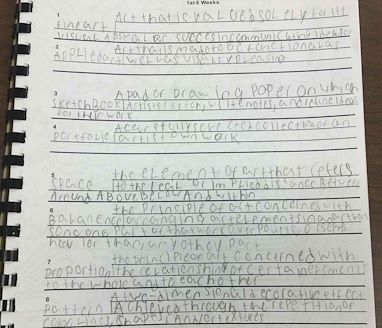 1st 6 Weeks
1 Art that is valued solely for its
fine art visual appeal or success in communicating ideas or
2 Art that is made to be functional as
Applied art well as visually pleasing
3 A pad of drawing paper on which
sketchBook artists sketch, write notes, and refine ideas
for their work
4 A carefully selected collection of an
portfolio artist own work
5 the element of art that refers
space to the real or implied distance Between
Around Above Below And within
6 the principle of art concerned with
Balance arranging art elements in an artwork
so no one part of that work overpowers, or seems
heavier than, any other part
7 the principle of art concerned with
proportion the relationship of certain elements
to the whole and to each other
8 A two-dimensional decorative effect
pattern Achieved through the repetition of
color, lines, shapes And or textures